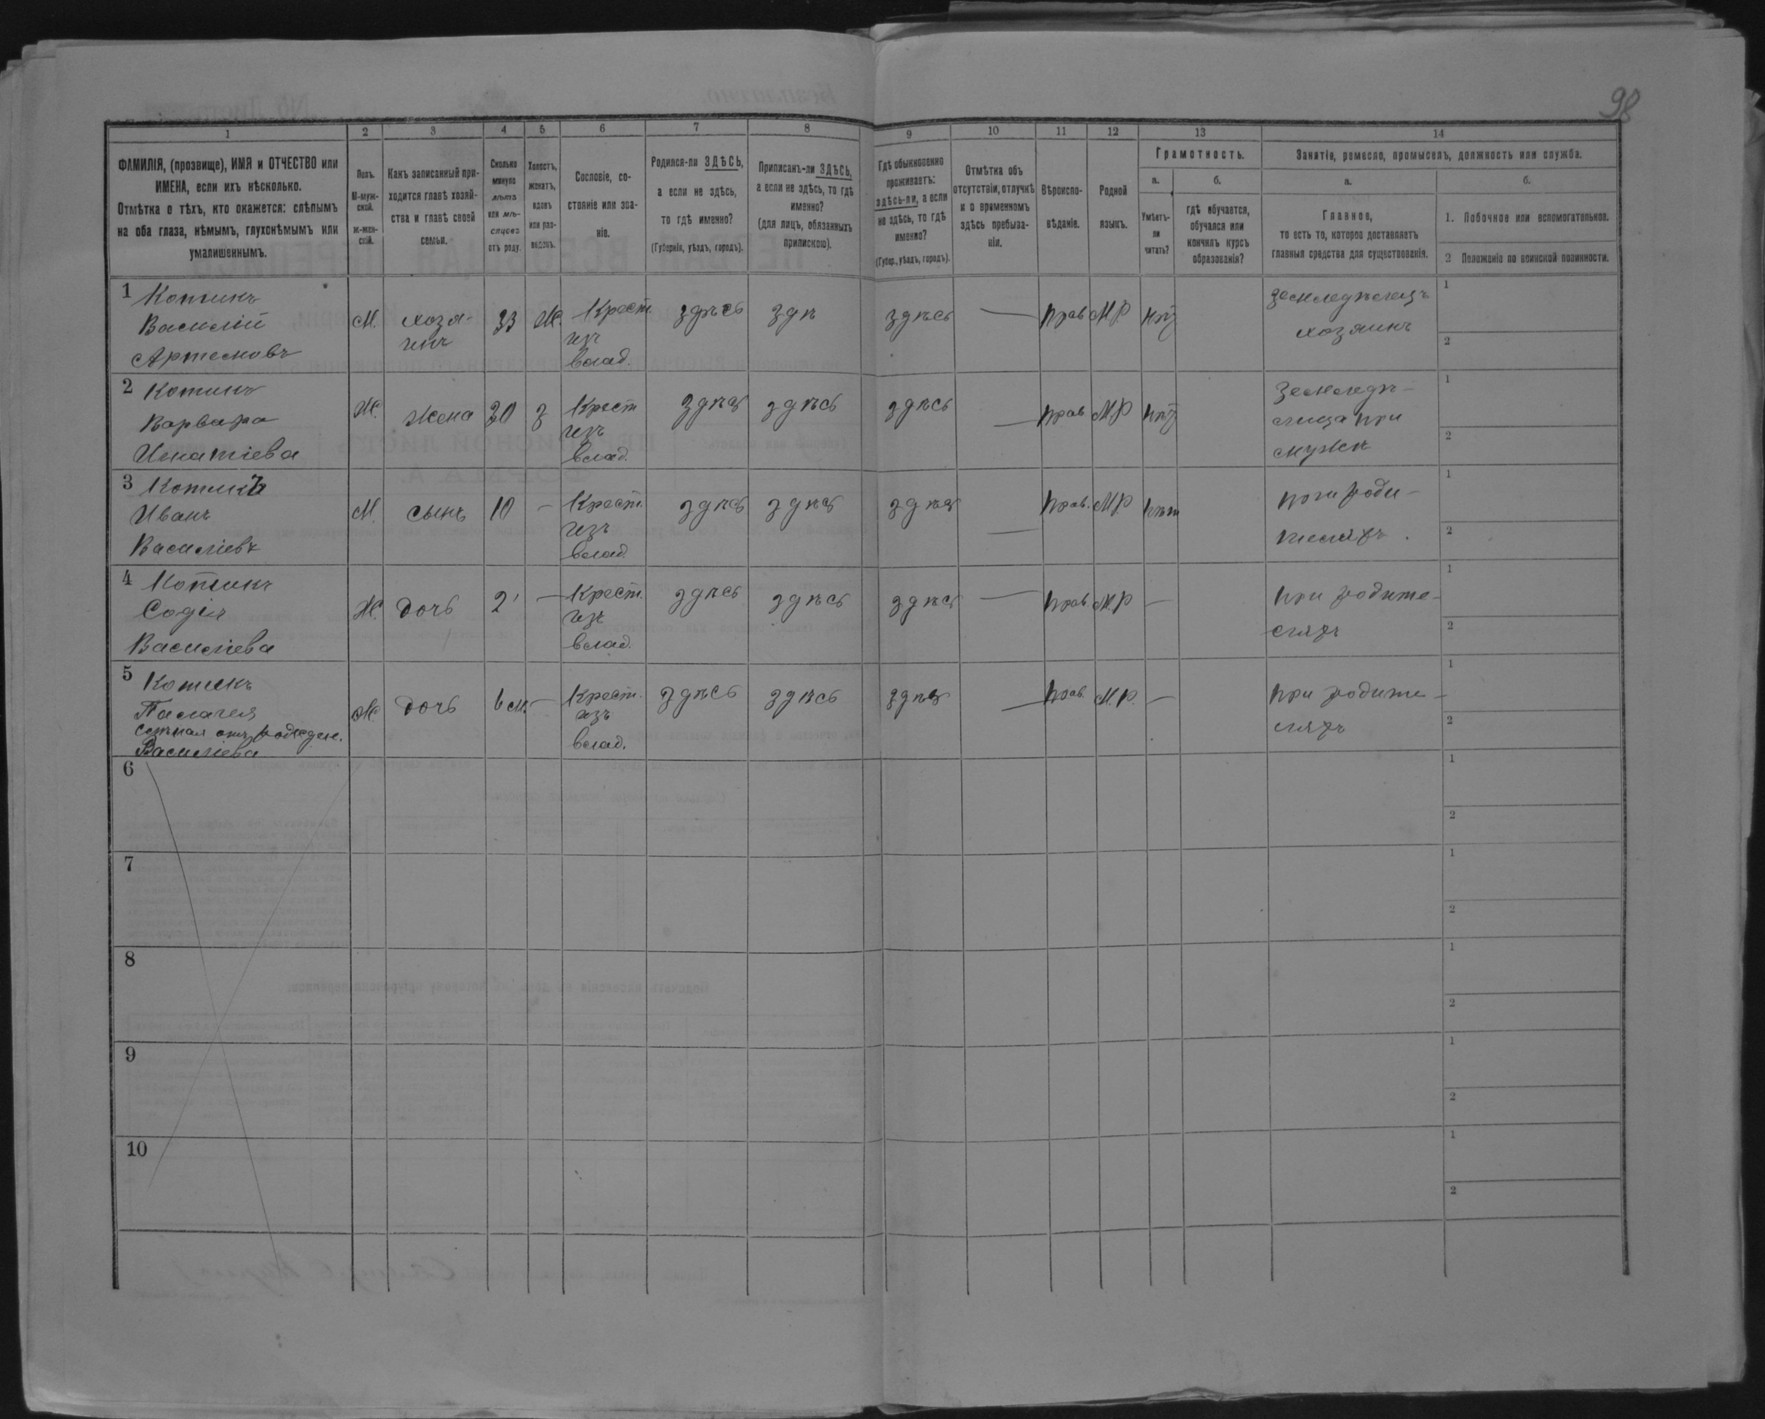 98
1 2 3 4 5 6 7 8 9 10 11 12 13 14
ФАМИЛІЯ, (прозвище), ИМЯ и ОТЧЕСТВО или
ИМЕНА, если ихъ нѣсколько.
Отмѣтка о тѣхъ, кто окажется: слѣпымъ
на оба глаза, нѣмымъ, глухонѣмымъ или
умалишеннымъ.
Полъ.
М-муж-
ской.
Ж-жен-
скій.
Какъ записанный при-
ходится главѣ хозяй-
ства и главѣ своей
семьи.
Сколько
минуло
лѣтъ
или мѣ-
сяцевъ
отъ роду.
Холостъ,
женатъ,
вдовъ
или раз-
веденъ.
Сословіе, со-
стояніе или зва-
ніе.
Родился-ли ЗДѢСЬ,
а если не здѣсь,
то гдѣ именно?
(Губернія, уѣздъ, городъ).
Приписанъ-ли ЗДѢСЬ,
а если не здѣсь, то гдѣ
именно?
(для лицъ, обязанныхъ
припискою).
Гдѣ обыкновенно
проживаетъ:
здѣсь-ли, а если
не здѣсь, то гдѣ
именно?
(Губер., уѣздъ, городъ).
Отмѣтка объ
отсутствіи, отлучкѣ
и о временномъ
здѣсь пребыва-
ніи.
Вѣроиспо-
вѣданіе.
Родной
языкъ.
Грамотность.
а.
Умѣетъ-
ли
читать?
б.
гдѣ обучается,
обучался или
кончилъ курсъ
образованія?
Занятіе, ремесло, промыселъ, должность или служба.
а.
Главное,
то есть то, которое доставляетъ
главныя средства для существованія.
б.
1. Побочное или вспомогательное.
2 Положеніе по воинской повинности.
1 Котикъ
Василій
Артемовъ
М. хозя-
инъ
33 Ж. Крест.
изъ
влад.
здѣсь здѣ здѣсь — прав М.Р
земледѣлецъ
хозяинъ
1
2
2 Котикъ
Варвара
Игнатіева
Ж. жена 30 з Крест
изъ
влад.
здѣсь здѣсь здѣсь — прав М.Р
земледѣ-
лица при
мужѣ
1
2
3 Котикъ
Иванъ
Василіевъ
М. сынъ 10 — Крест.
изъ
влад.
здѣсь здѣсь здѣсь — прав. М.Р нѣт
при роди-
теляхъ.
1
2
4 Котикъ
Софія
Василіева
Ж. дочь 2 — Крест.
изъ
влад.
здѣсь здѣсь здѣсь — прав. М.Р —
при родите-
ляхъ
1
2
5 Котикъ
Палагея
слѣпая отъ рожден.
Василіева
Ж дочь 6 м. — Крест.
изъ
влад.
здѣсь здѣсь здѣсь — прав. М.Р. —
при родите-
ляхъ
1
2
6
1
2
7
1
2
8
1
2
9
1
2
10
1
2